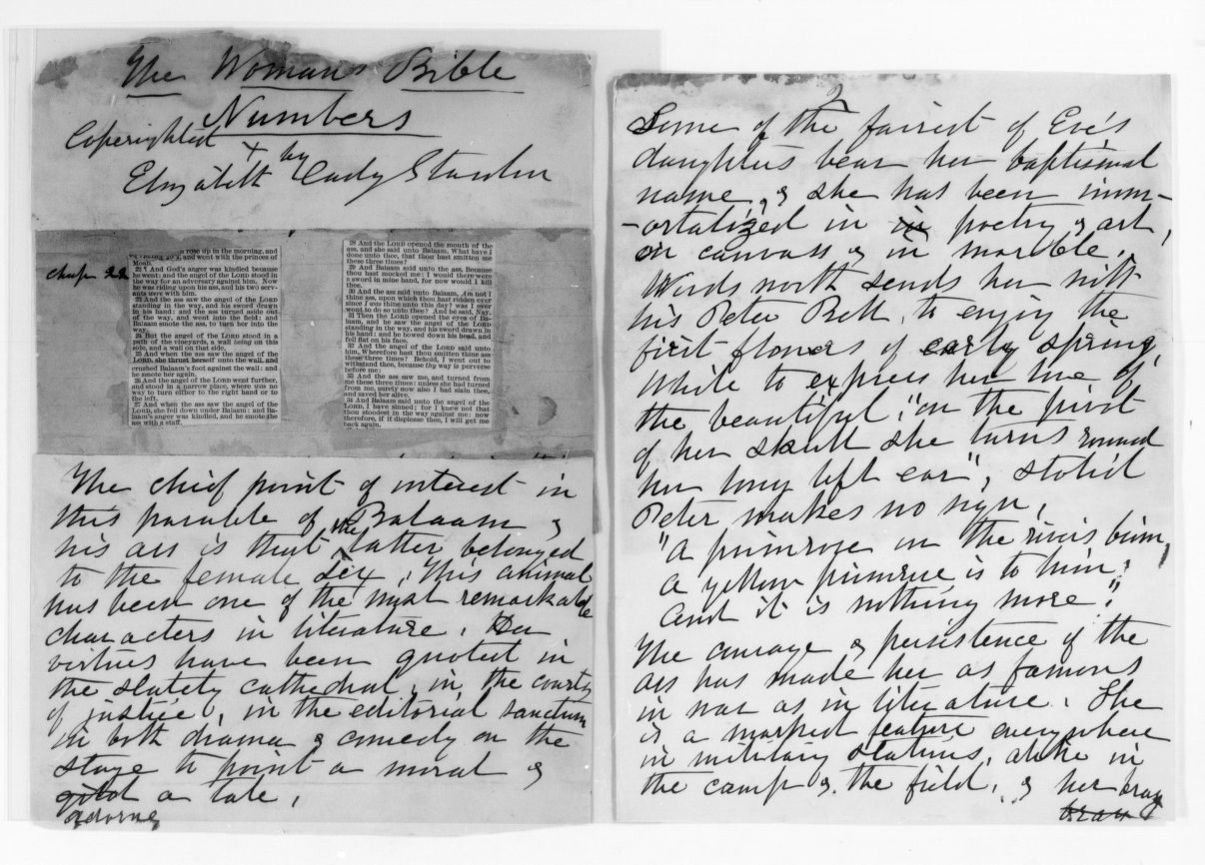 The Womans Bible
Numbers
Copyrighted
by
Elizabeth Cady Stanton
chap 22
rose up in the morning, and
and went with the princes of
Moab.
22 ¶ And God's anger was kindled because
he went: and the angel of the LORD stood in
the way for an adversary against him. Now
he was riding upon his ass, and his two serv-
ants were with him.
23 And the ass saw the angel of the LORD
standing in the way, and his sword drawn
in his hand: and the ass turned aside out
of the way, and went into the field: and
Balaam smote the ass, to turn her into the
way.
24 But the angel of the LORD stood in a
path of the vineyards, a wall being on this
side, and a wall on that side.
25 And when the ass saw the angel of the
LORD, she thrust herself unto the wall, and
crushed Balaam's foot against the wall: and
he smote her again.
26 And the angel of the LORD went further,
and stood in a narrow place, where was no
way to turn either to the right hand or to
the left.
27 And when the ass saw the angel of the
LORD, she fell down under Balaam: and Ba-
laam's anger was kindled, and he smote the
ass with a staff.
28 And the LORD opened the mouth of the
ass, and she said unto Balaam, What have I
done unto thee, that thou hast smitten me
these three times?
29 And Balaam said unto the ass, Because
thou hast mocked me: I would there were
a sword in mine hand, for now would I kill
thee.
30 And the ass said unto Balaam, Am not I
thine ass, upon which thou hast ridden ever
since I was thine unto this day? was I ever
wont to do so unto thee? And he said, Nay.
31 Then the LORD opened the eyes of Ba-
laam, and he saw the angel of the LORD
standing in the way, and his sword drawn in
his hand: and he bowed down his head, and
fell flat on his face.
32 And the angel of the LORD said unto
him, Wherefore hast thou smitten thine ass
these three times? Behold, I went out to
withstand thee, because thy way is perverse
before me:
33 And the ass saw me, and turned from
me these three times: unless she had turned
from me, surely now also I had slain thee,
and saved her alive.
34 And Balaam said unto the angel of the
LORD, I have sinned; for I knew not that
thou stoodest in the way against me: now
therefore, if it displease thee, I will get me
back again.
The chief point of interest in
this parable of Balaam &
his ass is that the latter belonged
to the female sex. This animal
has been one of the most remarkable
characters in literature. Her
virtues have been quoted in
the stately cathedral, in the courts
of justice, in the editorial sanctum
in both drama & comedy on the
stage to point a moral &
adorn a tale.
2
Some of the fairest of Eve's
daughters bear her baptismal
name, & she has been imm-
-ortalized in in poetry & art,
on canvass & in marble.
Wordsworth sends her with
his Peter Bell, to enjoy the
first flowers of early spring,
While to express her love of
the beautiful "on the pivot
of her skull she turns round
her long left ear", stolid
Peter makes no sign,
"A primrose on the rivers brim,
a yellow primrose is to him;
and it is nothing more."
The courage & persistence of the
ass has made her as famous
in war as in literature. She
is a marked feature everywhere
in military stations, alike in
the camp & the field, & her bray
bray